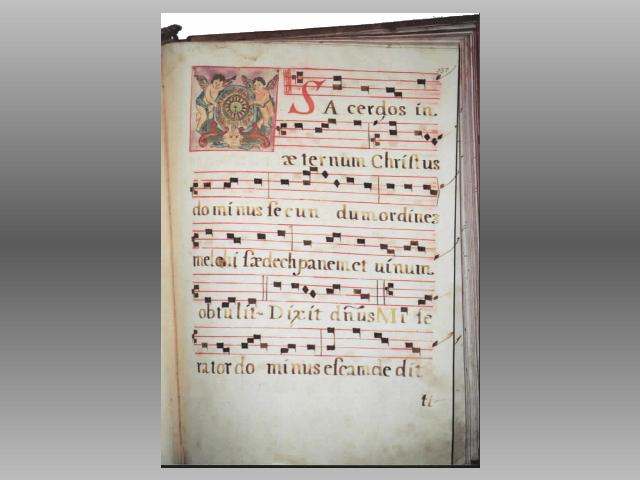 SA cerdos in.
æ ternum Christus
do mi nus se cun dum ordinez
melchi sædech panem et uinum.
obtulit~ Dixit dñus Mi se
rator do mi nus escam de dit
ti